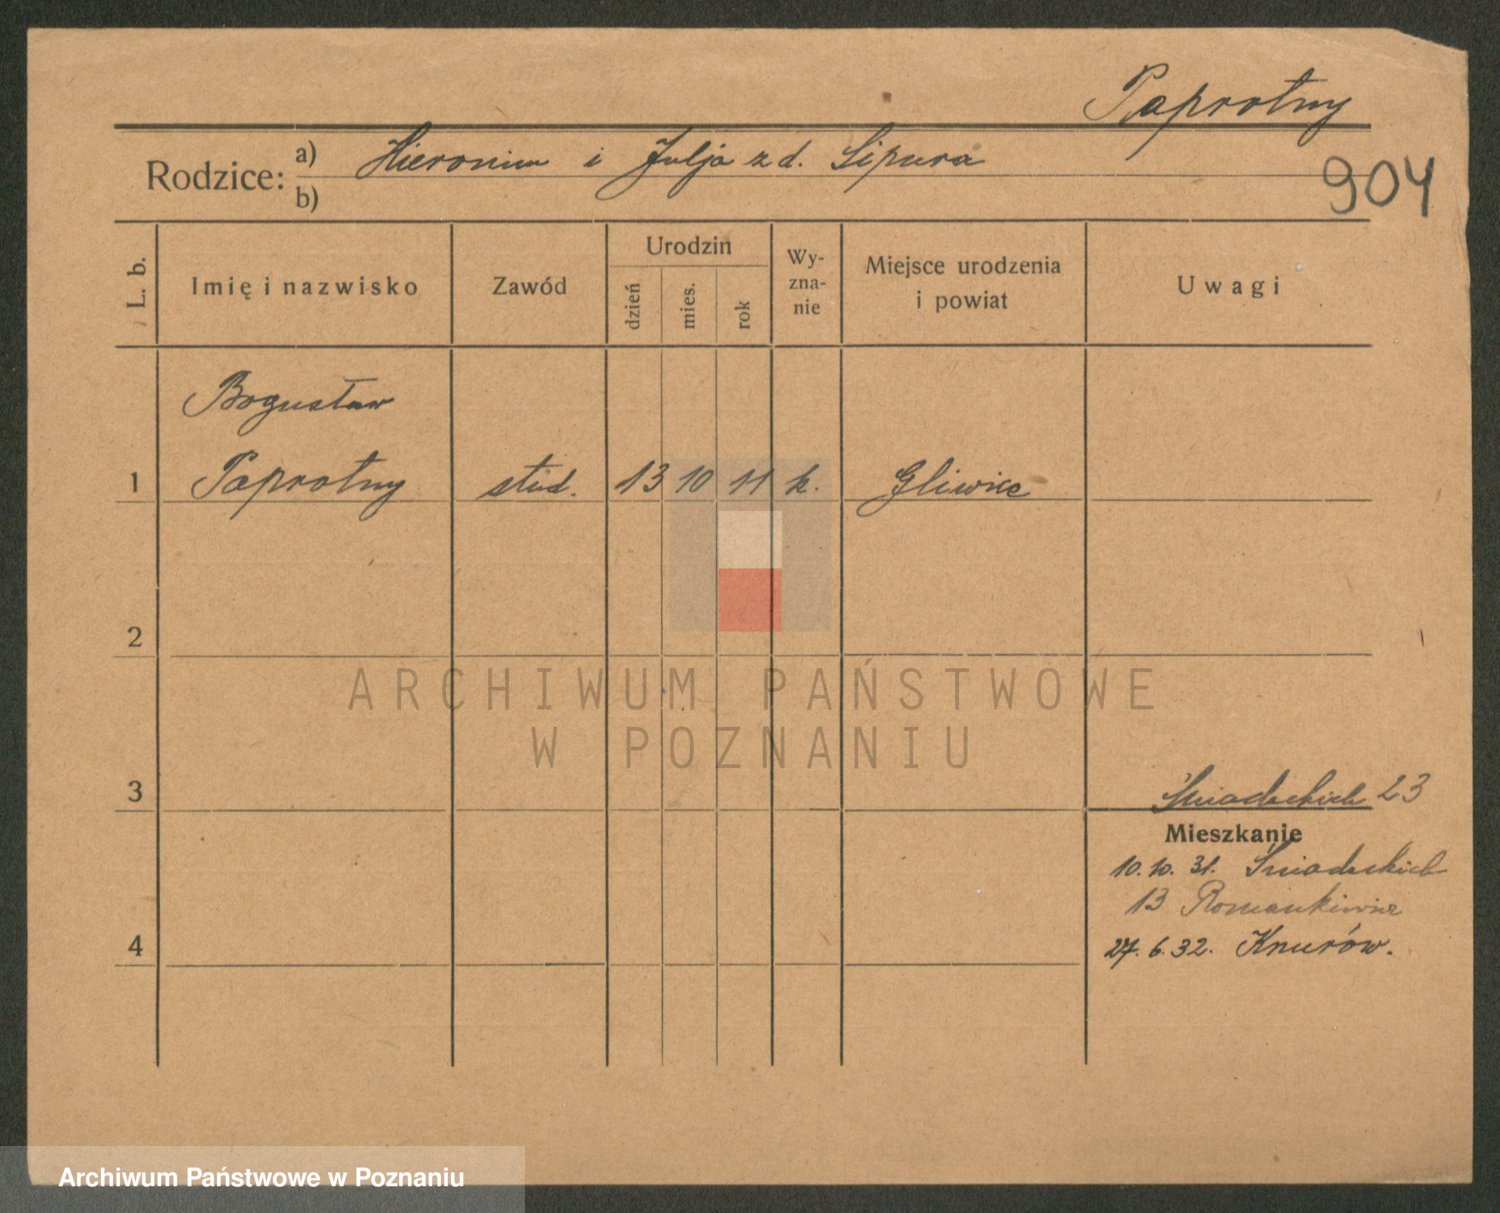 Paprotny
Rodzice: a) Hieronim i Julja z d. Sipura
b)
904
L. b.
Imię i nazwisko
Zawód
Urodzin
dzień
mies.
rok
Wy-
zna-
nie
Miejsce urodzenia
i powiat
Uwagi
Bogusław
1 Paprotny stud. 13 10 11 k. Gliwice
2
ARCHIWUM PAŃSTWOWE
W POZNANIU
3
Śniadeckich 23
Mieszkanie
10. 10. 31. Śniadeckich
13 Romankiewicz
4
27. 6. 32. Knurów.
Archiwum Państwowe w Poznaniu